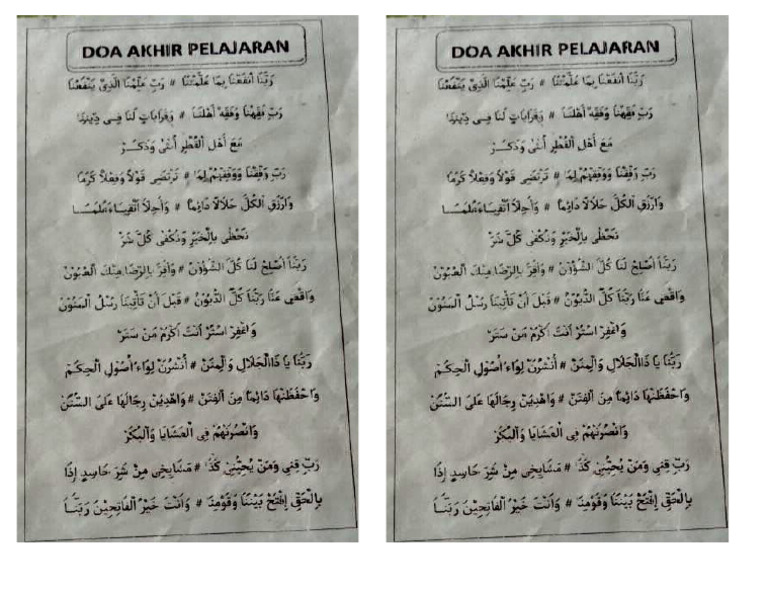 DOA AKHIR PELAJARAN
رَبَّنَا انْفَعْنَا بِمَا عَلَّمْتَنَا # رَبِّ عَلِّمْنَا الَّذِيْ يَنْفَعُنَا
رَبِّ فَقِّهْنَا وَفَقِّهْ أَهْلَنَا # وَقَرَابَاتٍ لَنَا فِي دِيْنِنَا
مَعَ أَهْلِ الْقُطْرِ أُنْثَى وَذَكَرْ
رَبِّ وَفِّقْنَا وَوَفِّقْهُمْ لِمَا # تَرْتَضِى قَوْلاً وَفِعْلاً كَرَمًا
وَارْزُقِ الْكُلَّ حَلَالًا دَائِمًا # وَأَخِلاَّ أَتْقِيَاءَ
نَحْظَى بِالْخَيْرِ وَنُكْفَى كُلَّ شَرّْ
رَبَّنَا أَصْلِحْ لَنَا كُلَّ الشُّؤُوْنْ # وَأَقِرَّ بِالرِّضَا مِنْكَ الْعُيُوْنْ
عَنَّا رَبَّنَا كُلَّ الدُّيُوْنْ # قَبْلَ أَنْ تَأْتِيَنَا رُسْلُ الْمَنُوْنْ
وَاغْفِرْ اسْتُرْ أَنْتَ أَكْرَمُ مَنْ سَتَرْ
رَبَّنَا يَا ذَاالْجَلَالِ وَالْمِنَنْ # أُنْشُرَنْ لِوَاءَ أُصُوْلِ الْحِكَمْ
وَاحْفَظَنْهَا دَائِمًا مِنَ الْفِتَنْ # وَاهْدِيَنْ رِجَالَهَا عَلَى السُّنَنْ
وَانْصُرَنْهُمْ فِى الْعَشَايَا وَالْبُكَرْ
رَبِّ قِنِي وَمَنْ يُحِبُّنِيْ كَذَا # مَشَايِخِى مِنْ شَرِّ حَاسِدٍ إِذَا
بِالْحَقِّ إِفْتَحْ بَيْنَنَا وَقَوْمِنَا # وَأَنْتَ خَيْرُ الْفَاتِحِيْنَ رَبَّنَا
DOA AKHIR PELAJARAN
رَبَّنَا انْفَعْنَا بِمَا عَلَّمْتَنَا # رَبِّ عَلِّمْنَا الَّذِيْ يَنْفَعُنَا
رَبِّ فَقِّهْنَا وَفَقِّهْ أَهْلَنَا # وَقَرَابَاتٍ لَنَا فِي دِيْنِنَا
مَعَ أَهْلِ الْقُطْرِ أُنْثَى وَذَكَرْ
رَبِّ وَفِّقْنَا وَوَفِّقْهُمْ لِمَا # تَرْتَضِى قَوْلاً وَفِعْلاً كَرَمًا
وَارْزُقِ الْكُلَّ حَلَالًا دَائِمًا # وَأَخِلاَّ أَتْقِيَاءَ
نَحْظَى بِالْخَيْرِ وَنُكْفَى كُلَّ شَرّْ
رَبَّنَا أَصْلِحْ لَنَا كُلَّ الشُّؤُوْنْ # وَأَقِرَّ بِالرِّضَا مِنْكَ الْعُيُوْنْ
عَنَّا رَبَّنَا كُلَّ الدُّيُوْنْ # قَبْلَ أَنْ تَأْتِيَنَا رُسْلُ الْمَنُوْنْ
وَاغْفِرْ اسْتُرْ أَنْتَ أَكْرَمُ مَنْ سَتَرْ
رَبَّنَا يَا ذَاالْجَلَالِ وَالْمِنَنْ # أُنْشُرَنْ لِوَاءَ أُصُوْلِ الْحِكَمْ
وَاحْفَظَنْهَا دَائِمًا مِنَ الْفِتَنْ # وَاهْدِيَنْ رِجَالَهَا عَلَى السُّنَنْ
وَانْصُرَنْهُمْ فِى الْعَشَايَا وَالْبُكَرْ
رَبِّ قِنِي وَمَنْ يُحِبُّنِيْ كَذَا # مَشَايِخِى مِنْ شَرِّ حَاسِدٍ إِذَا
بِالْحَقِّ إِفْتَحْ بَيْنَنَا وَقَوْمِنَا # وَأَنْتَ خَيْرُ الْفَاتِحِيْنَ رَبَّنَا